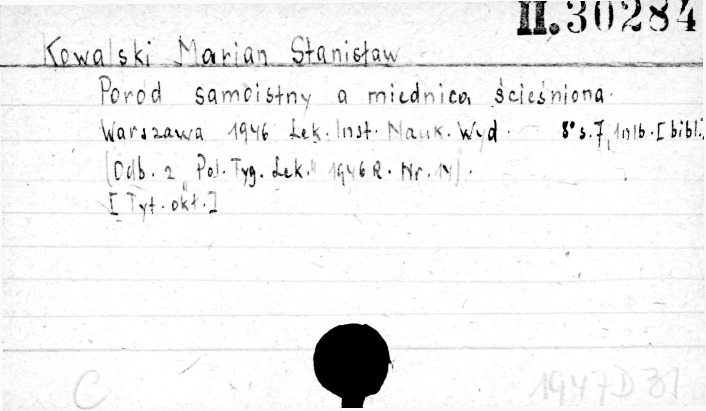 II. 30284
Kowalski Marian Stanisław
Poród samoistny a miednica ścieśniona.
Warszawa 1946 Lek. Inst. Nauk. Wyd. 8° s. 7, 1 nlb. [bibl.
(Odb. z „Pol. Tyg. Lek." 1946 R. Nr. 14).
[Tyt. okł.]
C 1947 D 31